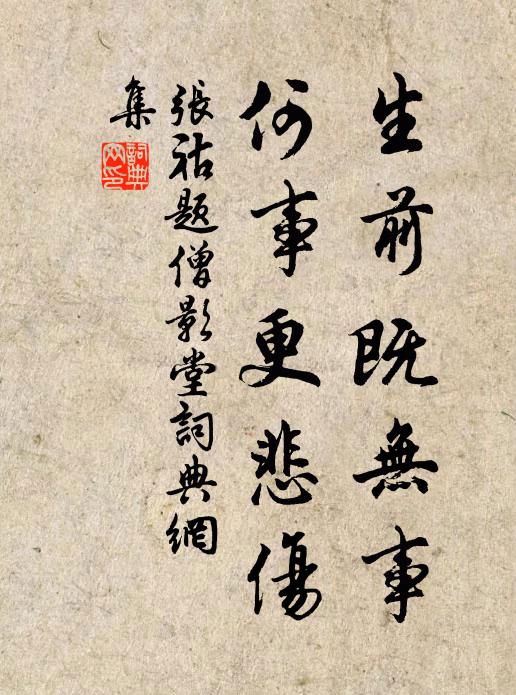 生前既無事
何事更悲傷
張祜題僧影堂詞典網
集
詞典
網印